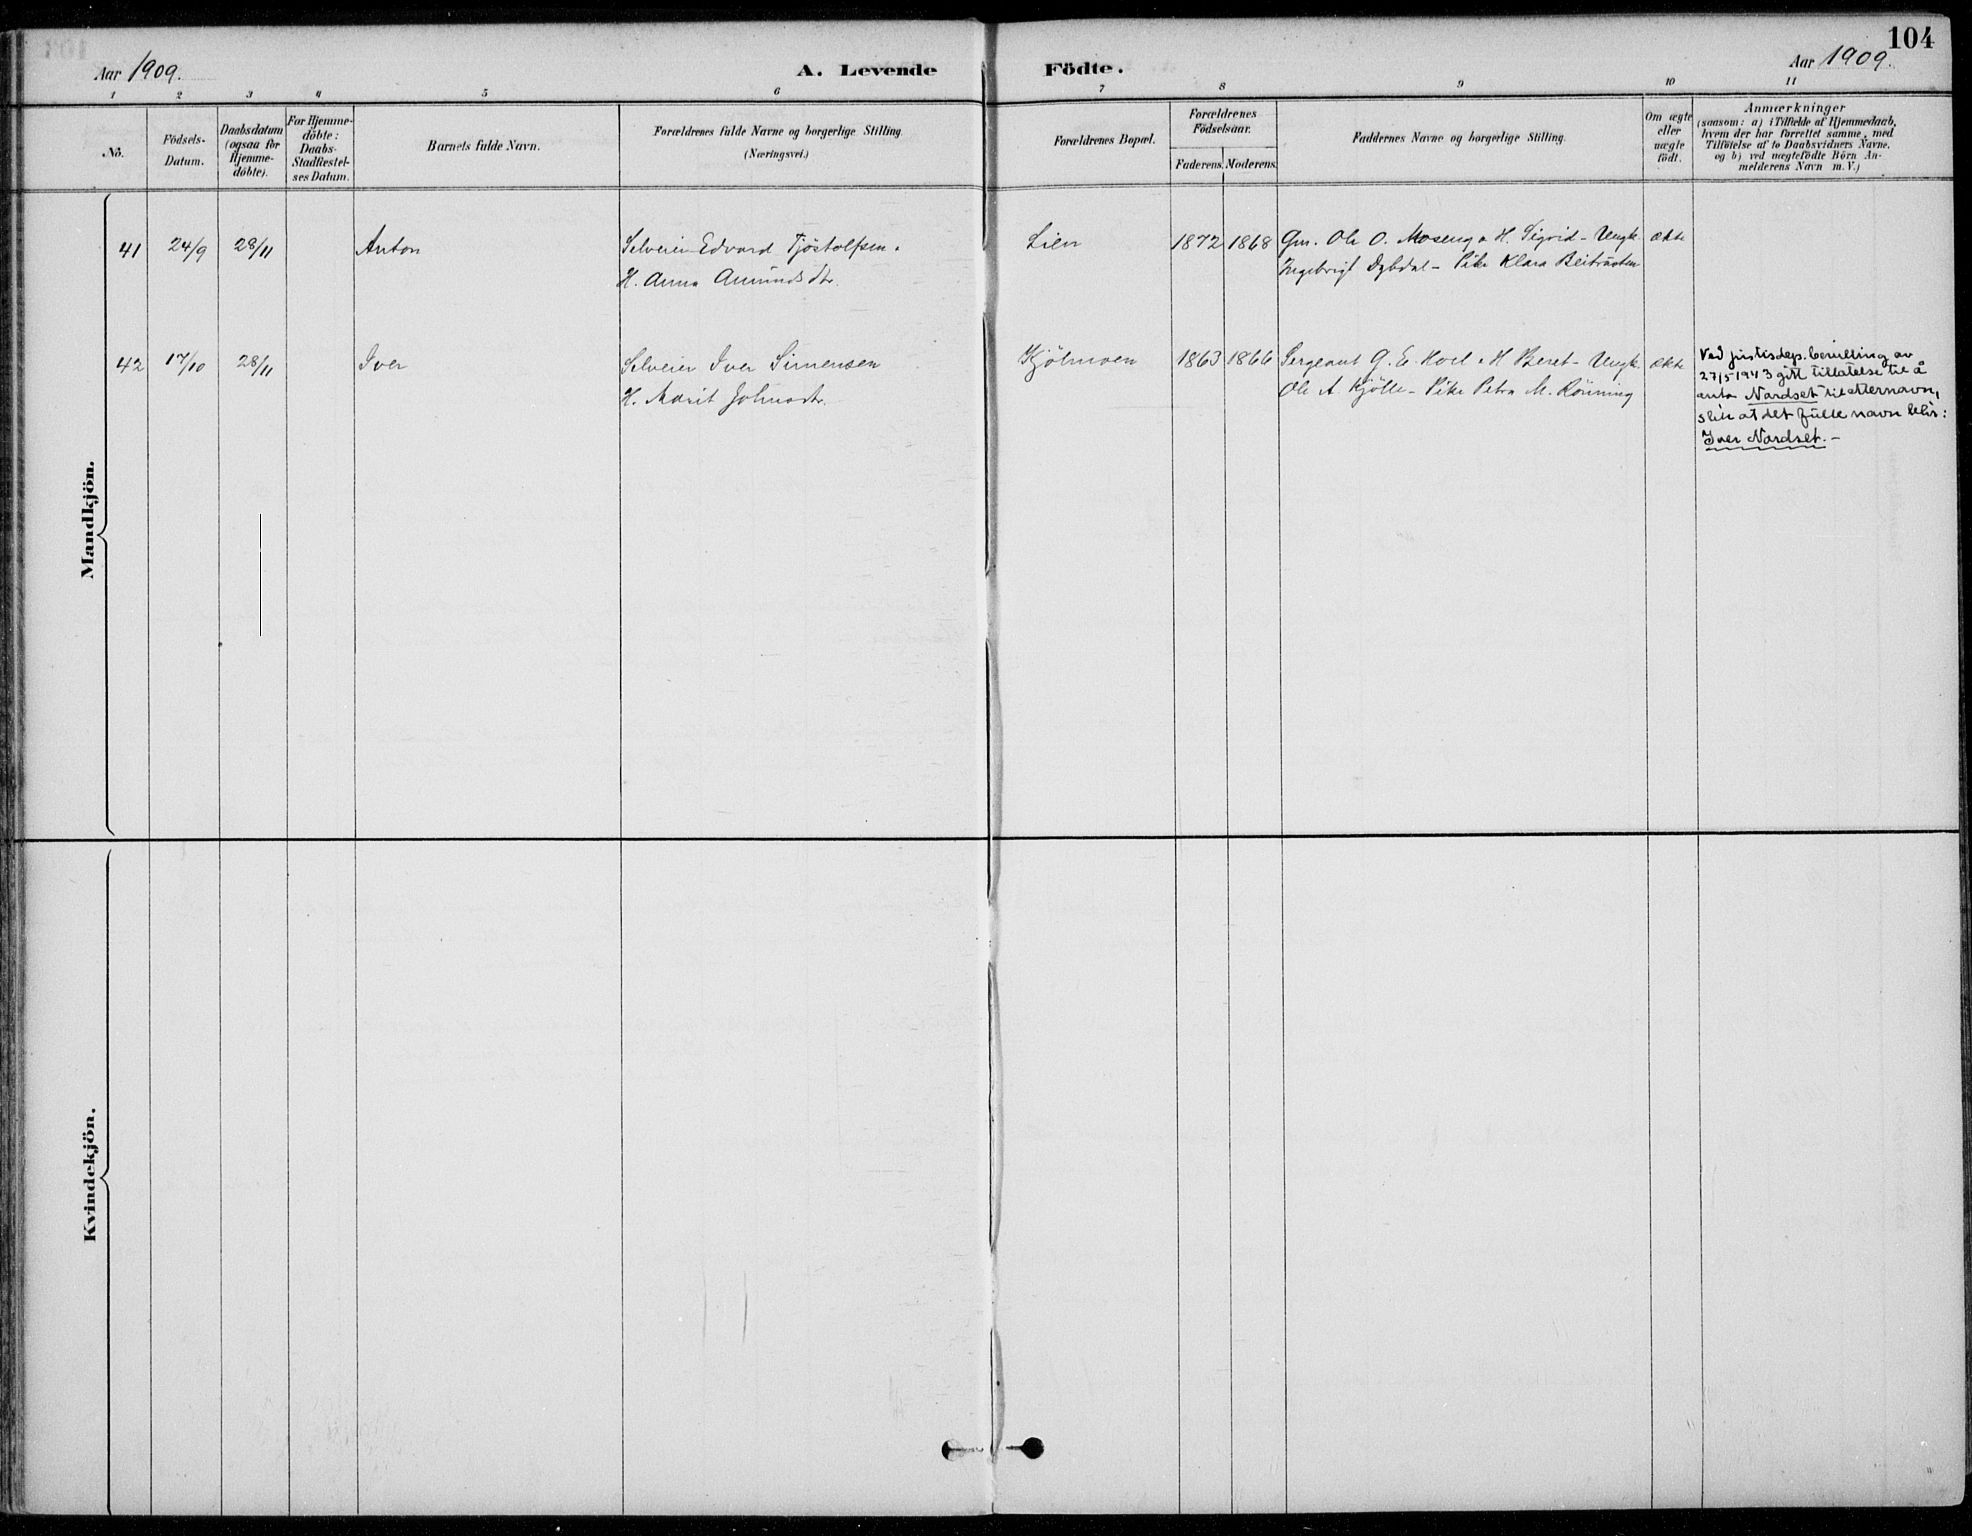 104
Aar 1909.
A. Levende Födte.
Aar 1909.
1 2 3 4 5 6 7 8 9 10 11
No.
Födsels-
Datum.
Daabsdatum
(ogsaa for
Hjemme-
döbte).
For Hjemme-
döbte:
Daabs-
Stadfæstel-
ses Datum.
Barnets fulde Navn.
Forældrenes fulde Navne og borgerlige Stilling
(Næringsvei.)
Forældrenes Bopæl.
Forældrenes
Födselsaar.
Faderens. Moderens.
Faddernes Navne og borgerlige Stilling.
Om ægte
eller
uægte
födt.
Anmærkninger
(saasom: a) i Tilfælde af Hjemmedaab,
hvem der har forrettet samme, med
Tilföielse af to Daabsvidners Navne,
og b) ved uægtefödte Börn An-
melderens Navn m. V.)
Mandkjön.
41 24/9 28/11 Anton Selveier Edvard Tjöstolfsen. Lien 1872 1868 Gm. Ole O. Moseng o H. Sigrid - Ungk. ekte
H. Anna Amundsdtr. Ingebrigt Dybdal - Pike Klara Beitråsten
42 17/10 28/11 Iver Selveier Iver Simensen Kjölmoen 1863 1866 Sergeant G. E. Hoel o H Beret - Ungk. ekte
H. Marit Johnsdtr. Ole A Kjölle - Pike Petra M. Rönning
Ved justisdep. bevilling av
27/5 1943 gitt tillatelse til å
anta Nordset til etternavn,
slik at det fulle navn blir:
Iver Nordset. -
Kvindekjön.